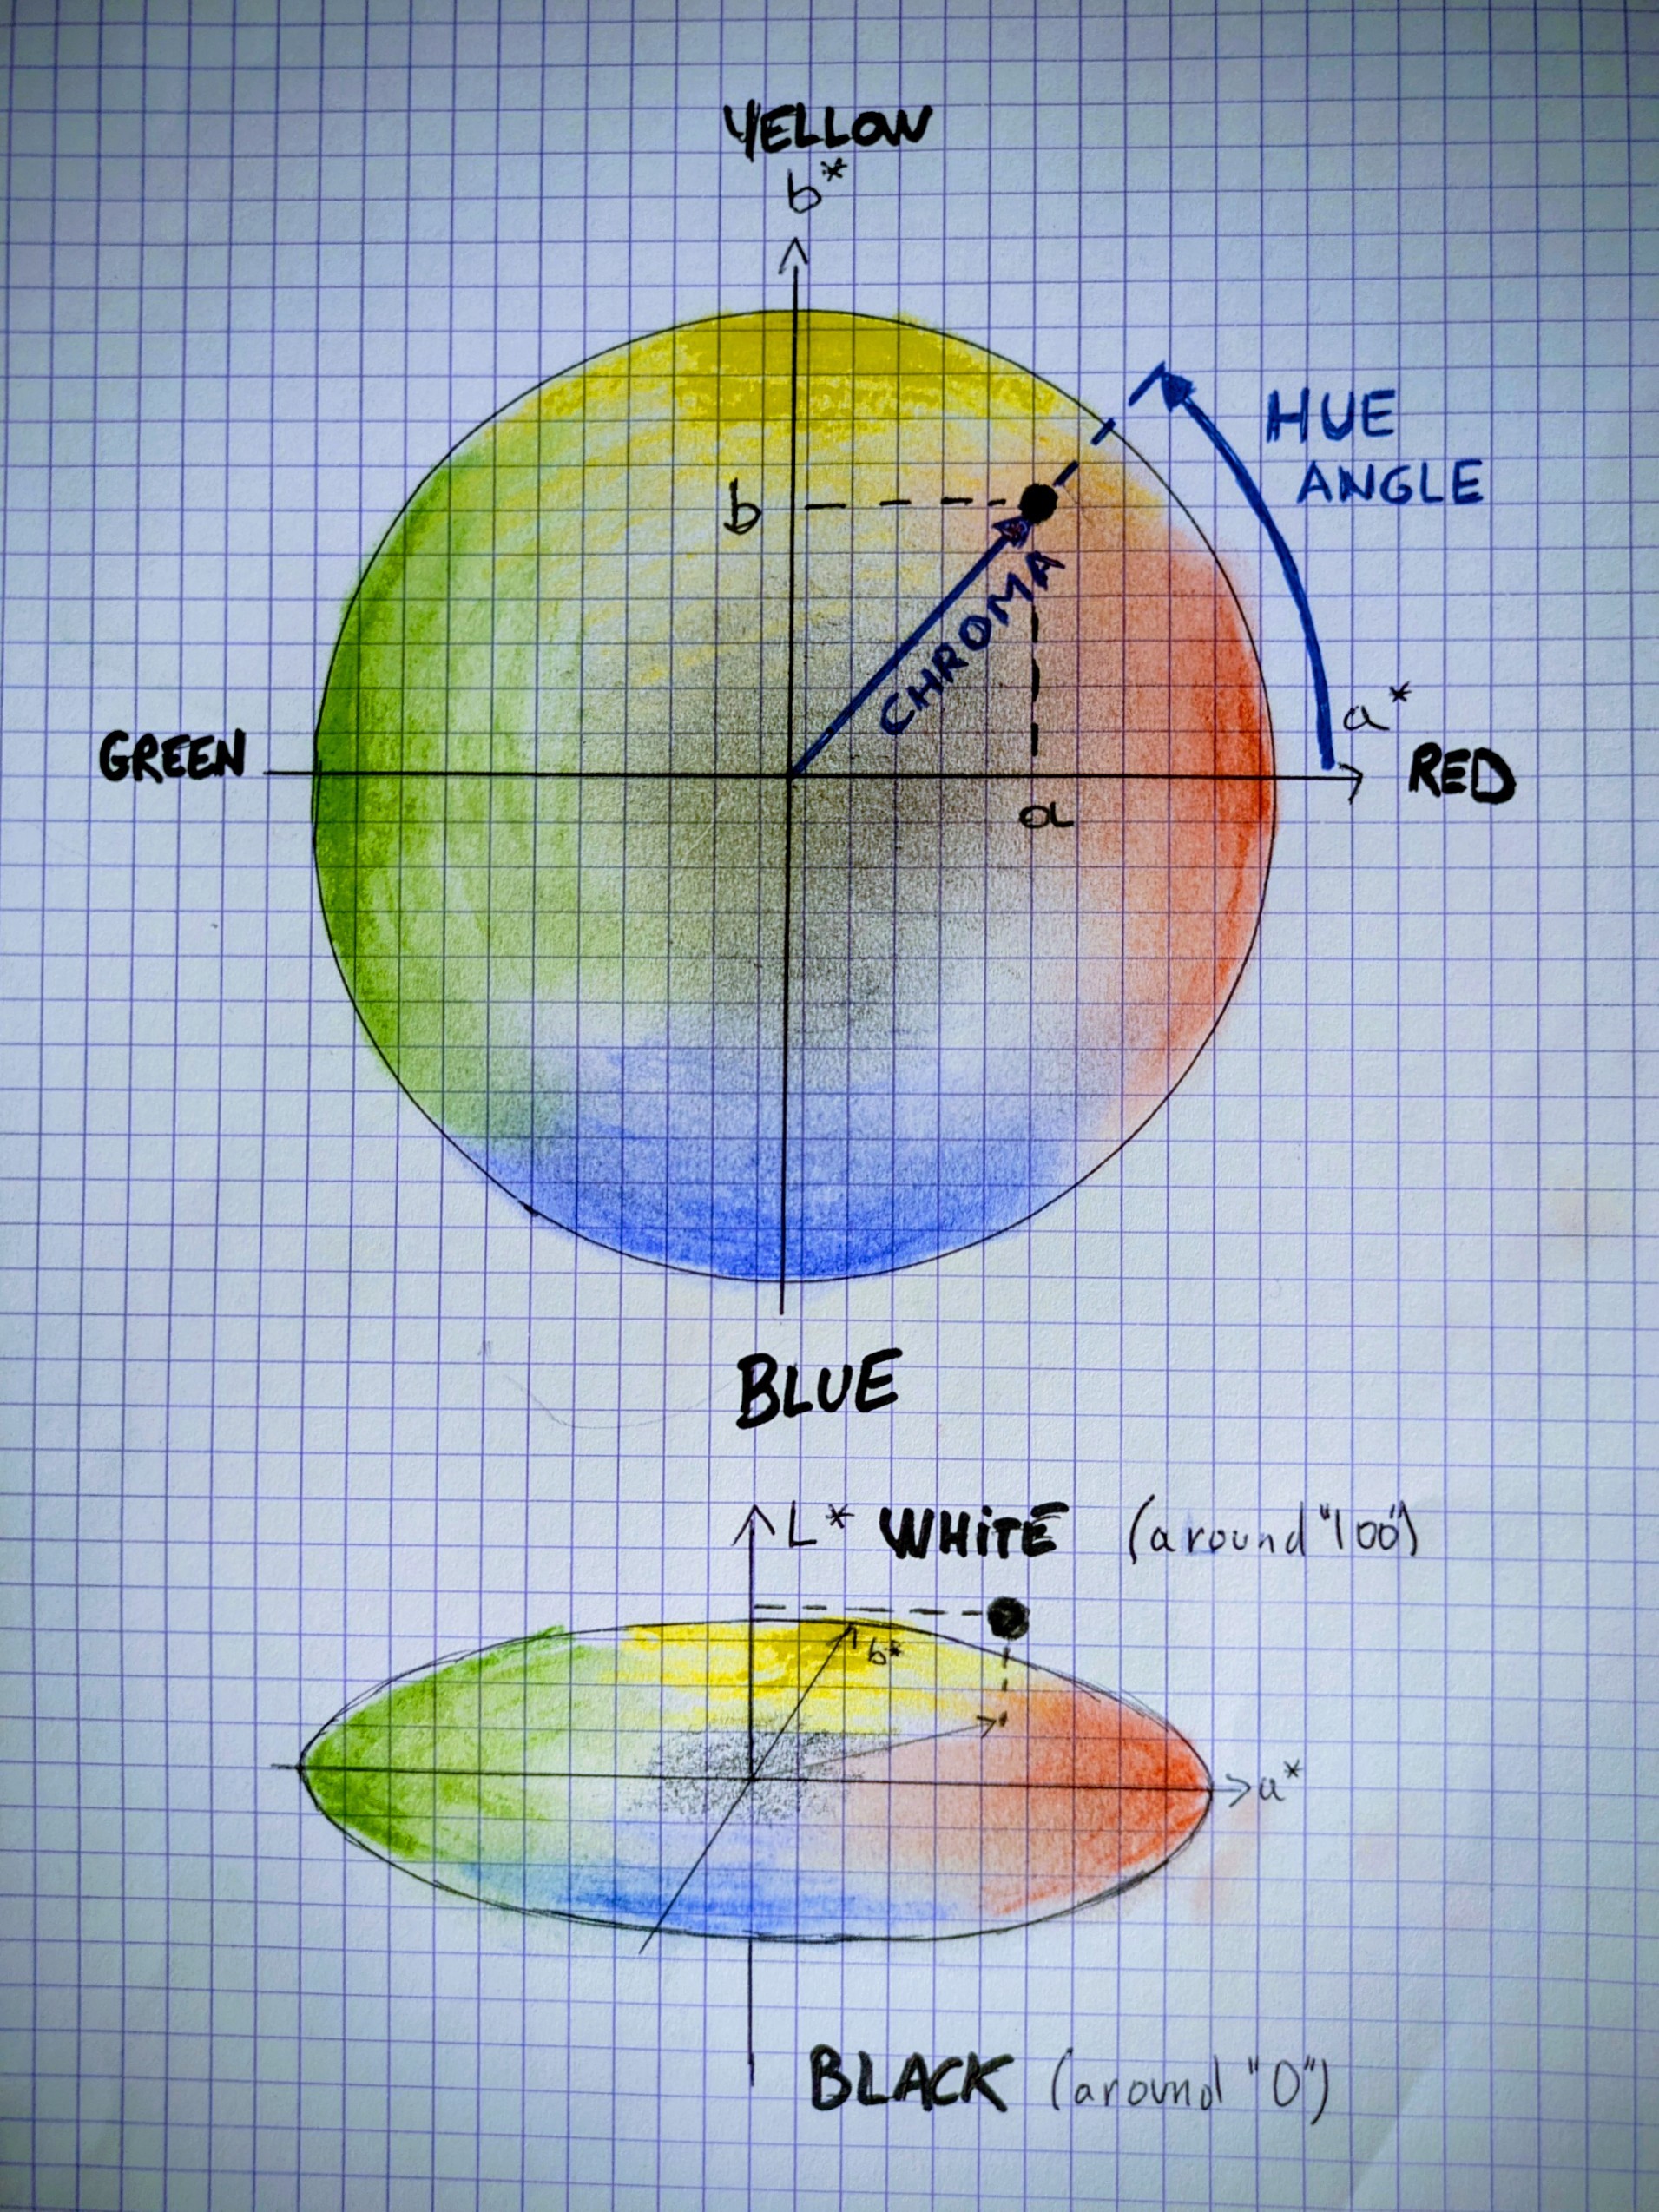 YELLOW
b*
HUE
ANGLE
b
CHROMA
a*
GREEN
RED
a
BLUE
L* WHiTE (around "100")
b*
a*
BLACK (around "0")